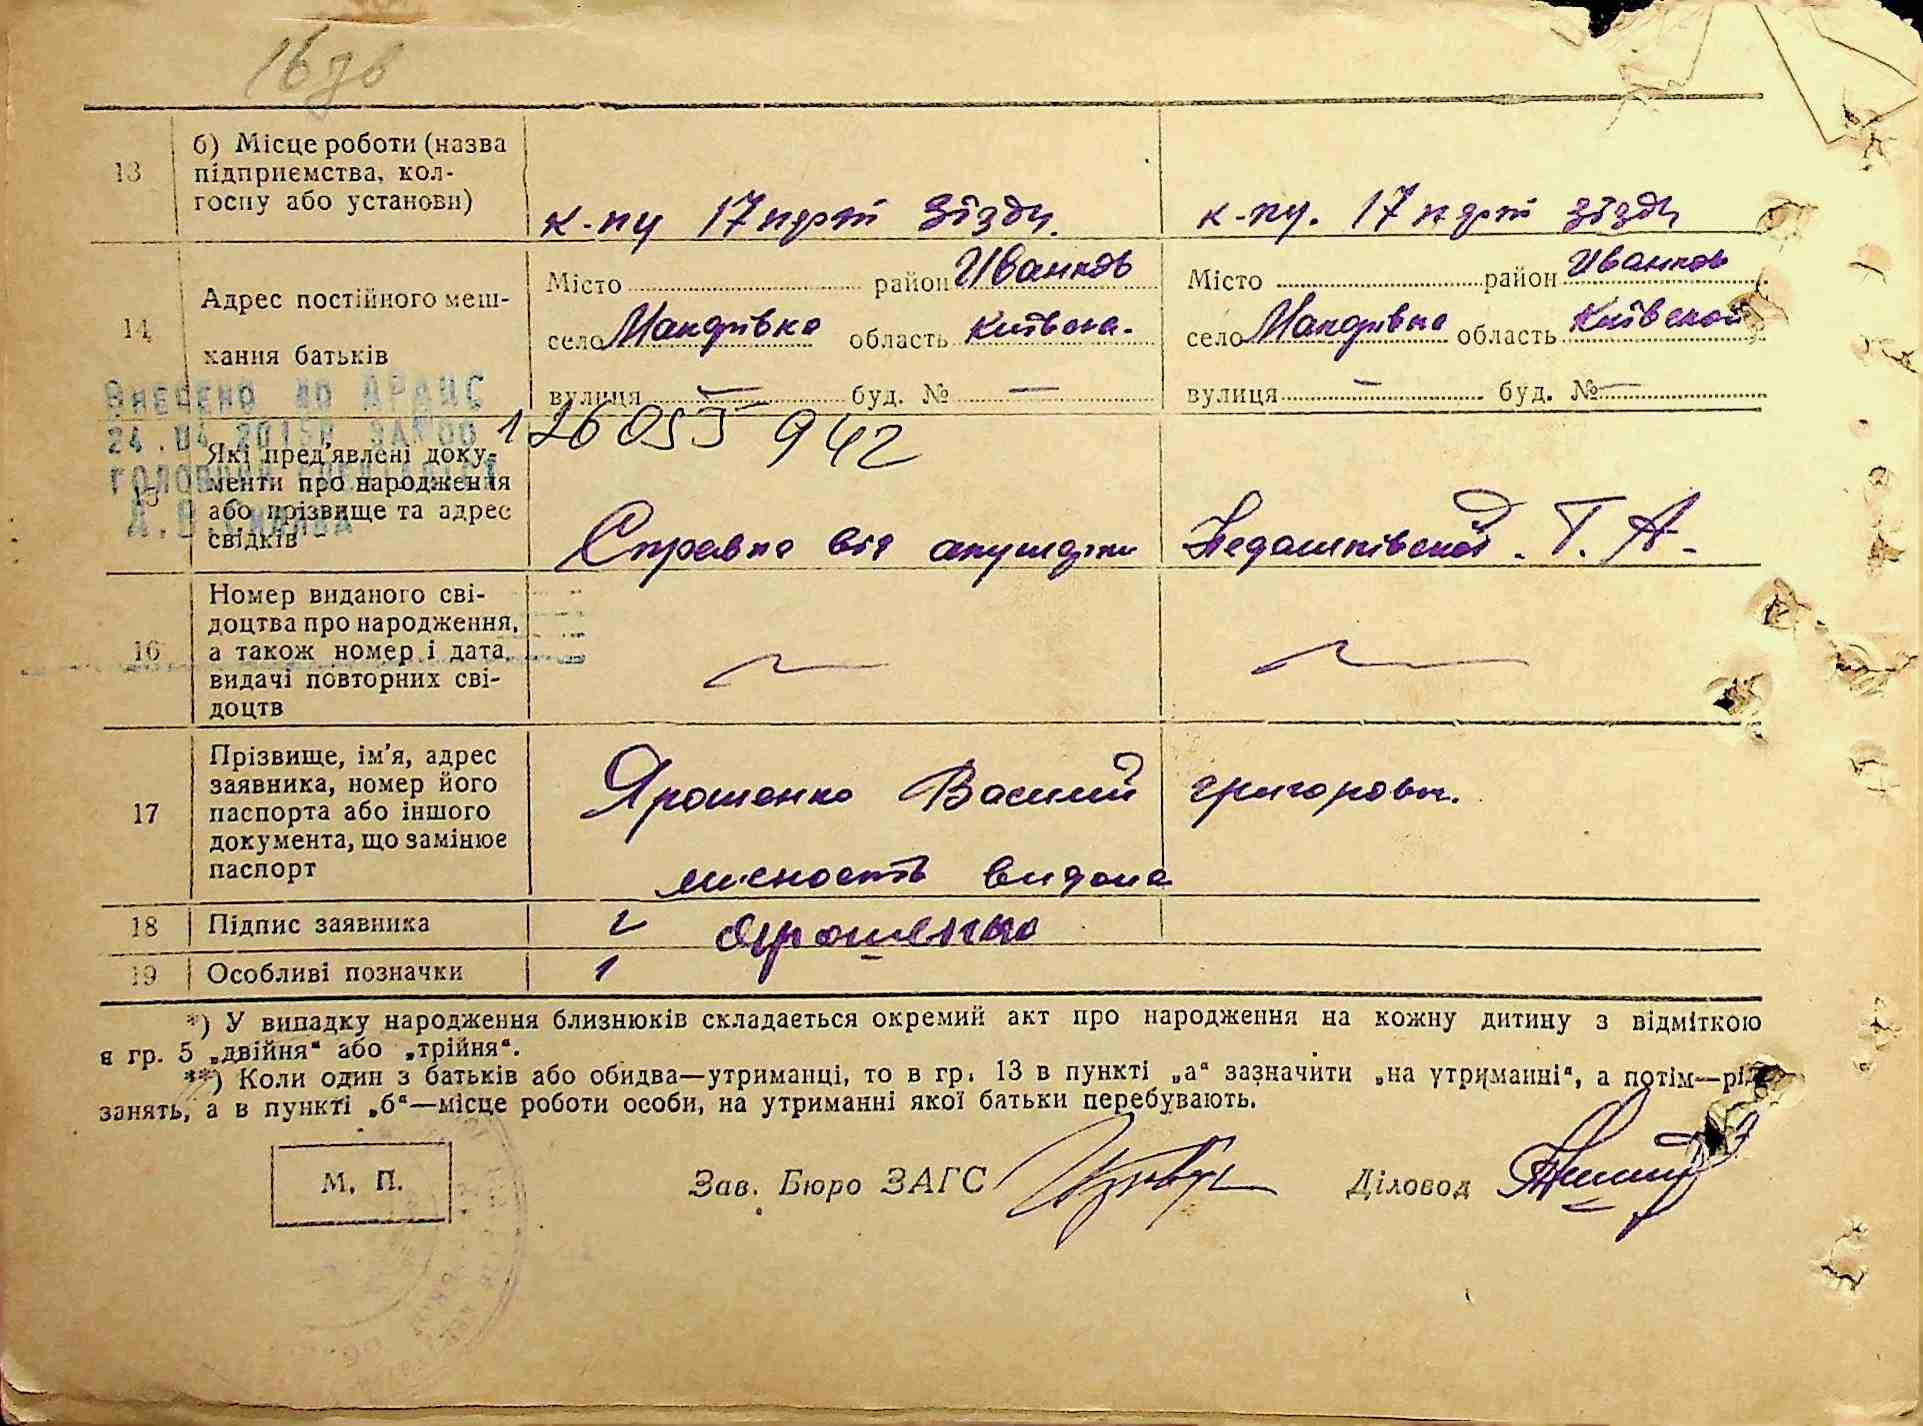 16зв
13
б) Місце роботи (назва
підприємства, кол-
госпу або установи)
к-пу 17 прт зїзду.
к-пу. 17 прт зїзду
14
Адрес постійного меш-
кання батьків
Місто район Иванков
село Макарівка область Київська.
вулиця — буд. № —
Місто район Иванков
село Макарівка область Київской
вулиця — буд. № —
Внесено до ДРАЦС
126055942
15
Які пред'явлені доку-
менти про народження
або прізвище та адрес
свідків
Справка від акушерки Недашківской. Т. А-
16
Номер виданого сві-
доцтва про народження,
а також номер і дата
видачі повторних сві-
доцтв
17
Прізвище, ім'я, адрес
заявника, номер його
паспорта або іншого
документа, що замінює
паспорт
Ярошенко Василий григорович.
лисность видана
18
Підпис заявника
Ярошенко
19
Особливі позначки
*) У випадку народження близнюків складається окремий акт про народження на кожну дитину з відміткою
в гр. 5 „двійня“ або „трійня“.
**) Коли один з батьків або обидва—утриманці, то в гр. 13 в пункті „а“ зазначити „на утриманні“, а потім—рід
занять, а в пункті „б“—місце роботи особи, на утриманні якої батьки перебувають.
М. П.
Зав. Бюро ЗАГС
Діловод